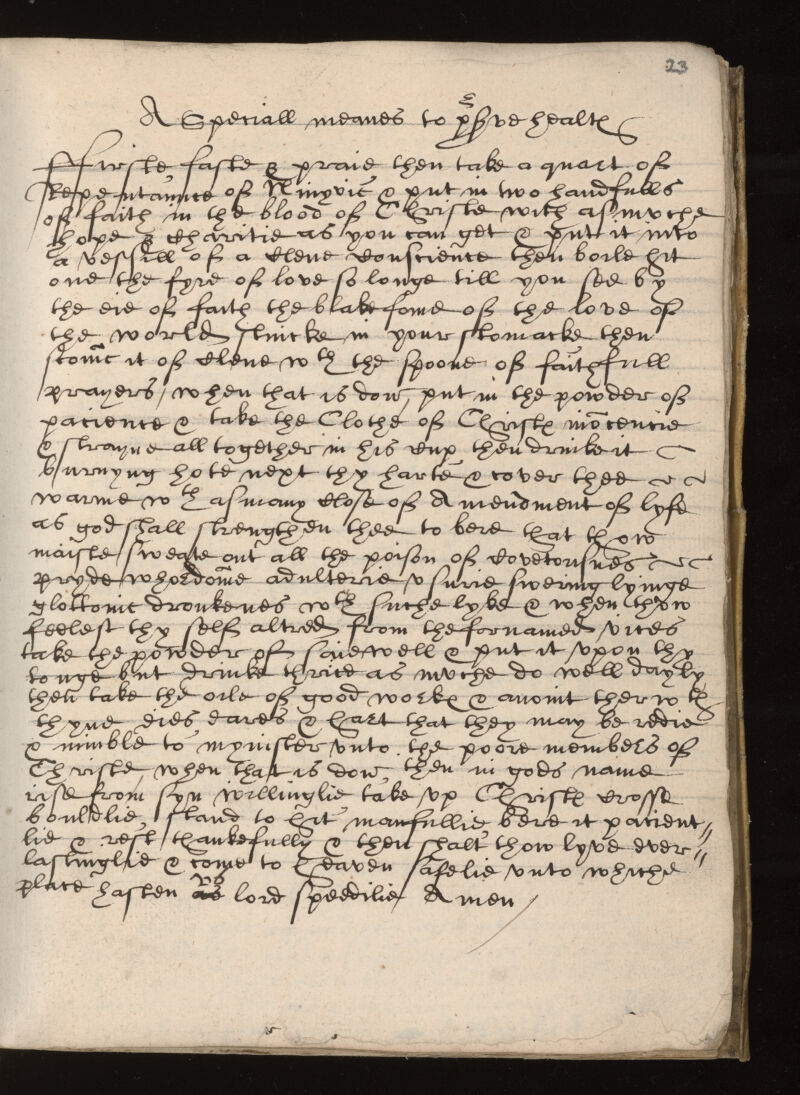 23
A Speciall meanes to p̱serve health
Ffirste faste & praie then take a quart of
Repentaunce of Ninyvie & put in two handfulls
of faith in the blood of Christe with as muche
hope & charitie as you can get & put it into
a vessill of a clene conscience then boile hit
one the fyre of love so longe till you see by
the eie of faith the blake fome of the love of
the world stincke in your stomacke then
scome it of clene wth the spoone of faithfull
prayers, when that is don, put in the powder of
pacience & take the Clothe of Christs inocencie
& strayne all together in his cup, then drinke it
burnyng hote next thy harte & cover thee
warme wth as many close of Amendment of lyfe
as god shall strengthen thee to bere that thow
maiste sweate out all the poison of covetousnes
pryde whordome adulterie usurie swering lyinge
glottonie dronkenes wth suche lyke & when thow
feelest thy self altred from the fornamed vices
take the powder of saie well & put it upon thy
tonge but drinke thrice as muche do well dayly
then take the oile of good works & anoint therwth
thyne eies eares & hart that they may be redie
& nimble to mynister unto the poore members of
Christe, when that is don, then in gods name
rise from syn willinglie take up Christs crosse
bouldlie, stand to hit manfullie bere it pacient-
lie & rest thankefully & then shalt thow lyve ever-
lastinglie & come to heaven safelie unto whiche
place hasten us lord speedilie Amen